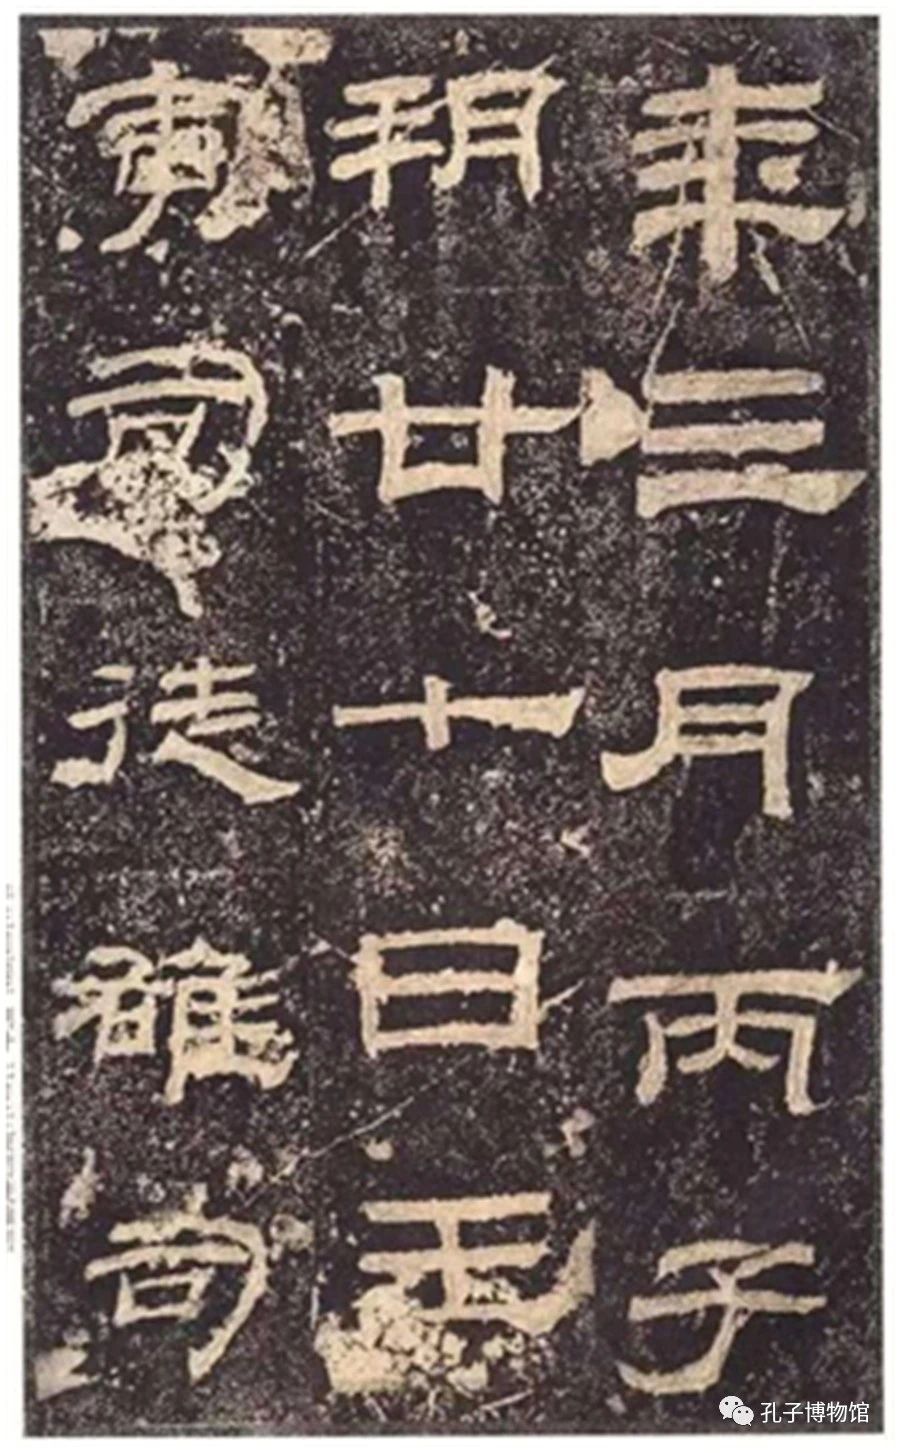 年三月丙子
朔廿七日壬
寅司徒雄司
孔子博物馆